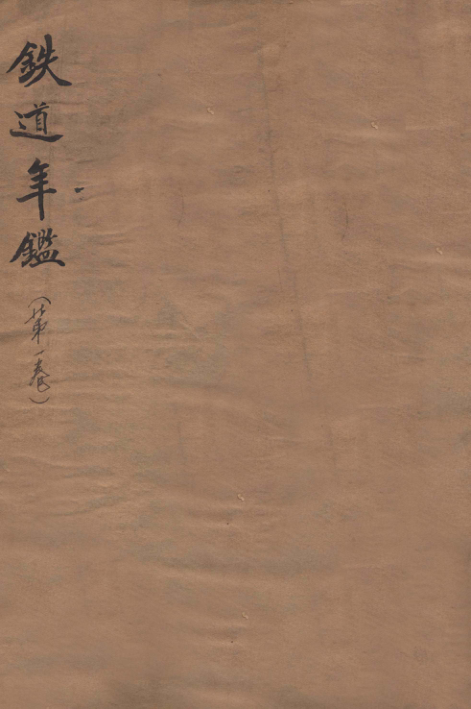 鉄道年鑑
（第一卷）